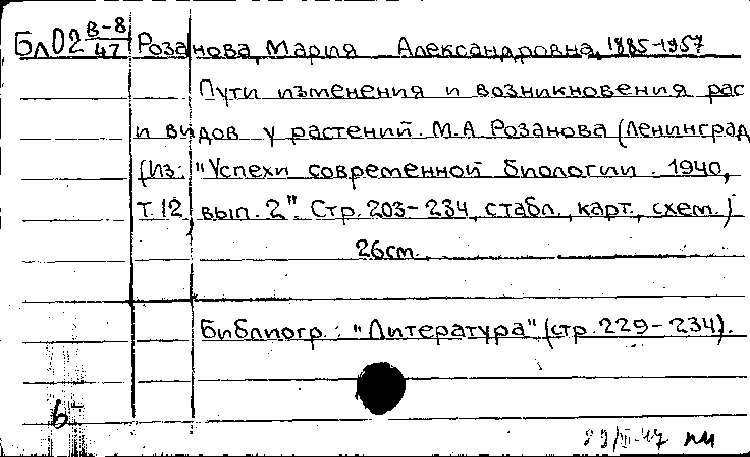 Бл02 В-8/47 Розанова, Мария Александровна, 1885-1957
Пути изменения и возникновения рас
и видов у растений. М.А Розанова (Ленинград
(Из: "Успехи современной биологии. 1940,
Т.12, вып. 2". Стр. 203-234, стабл., карт., схем.)
26см.
Библиогр.: "Литература" (стр. 229-234).
6